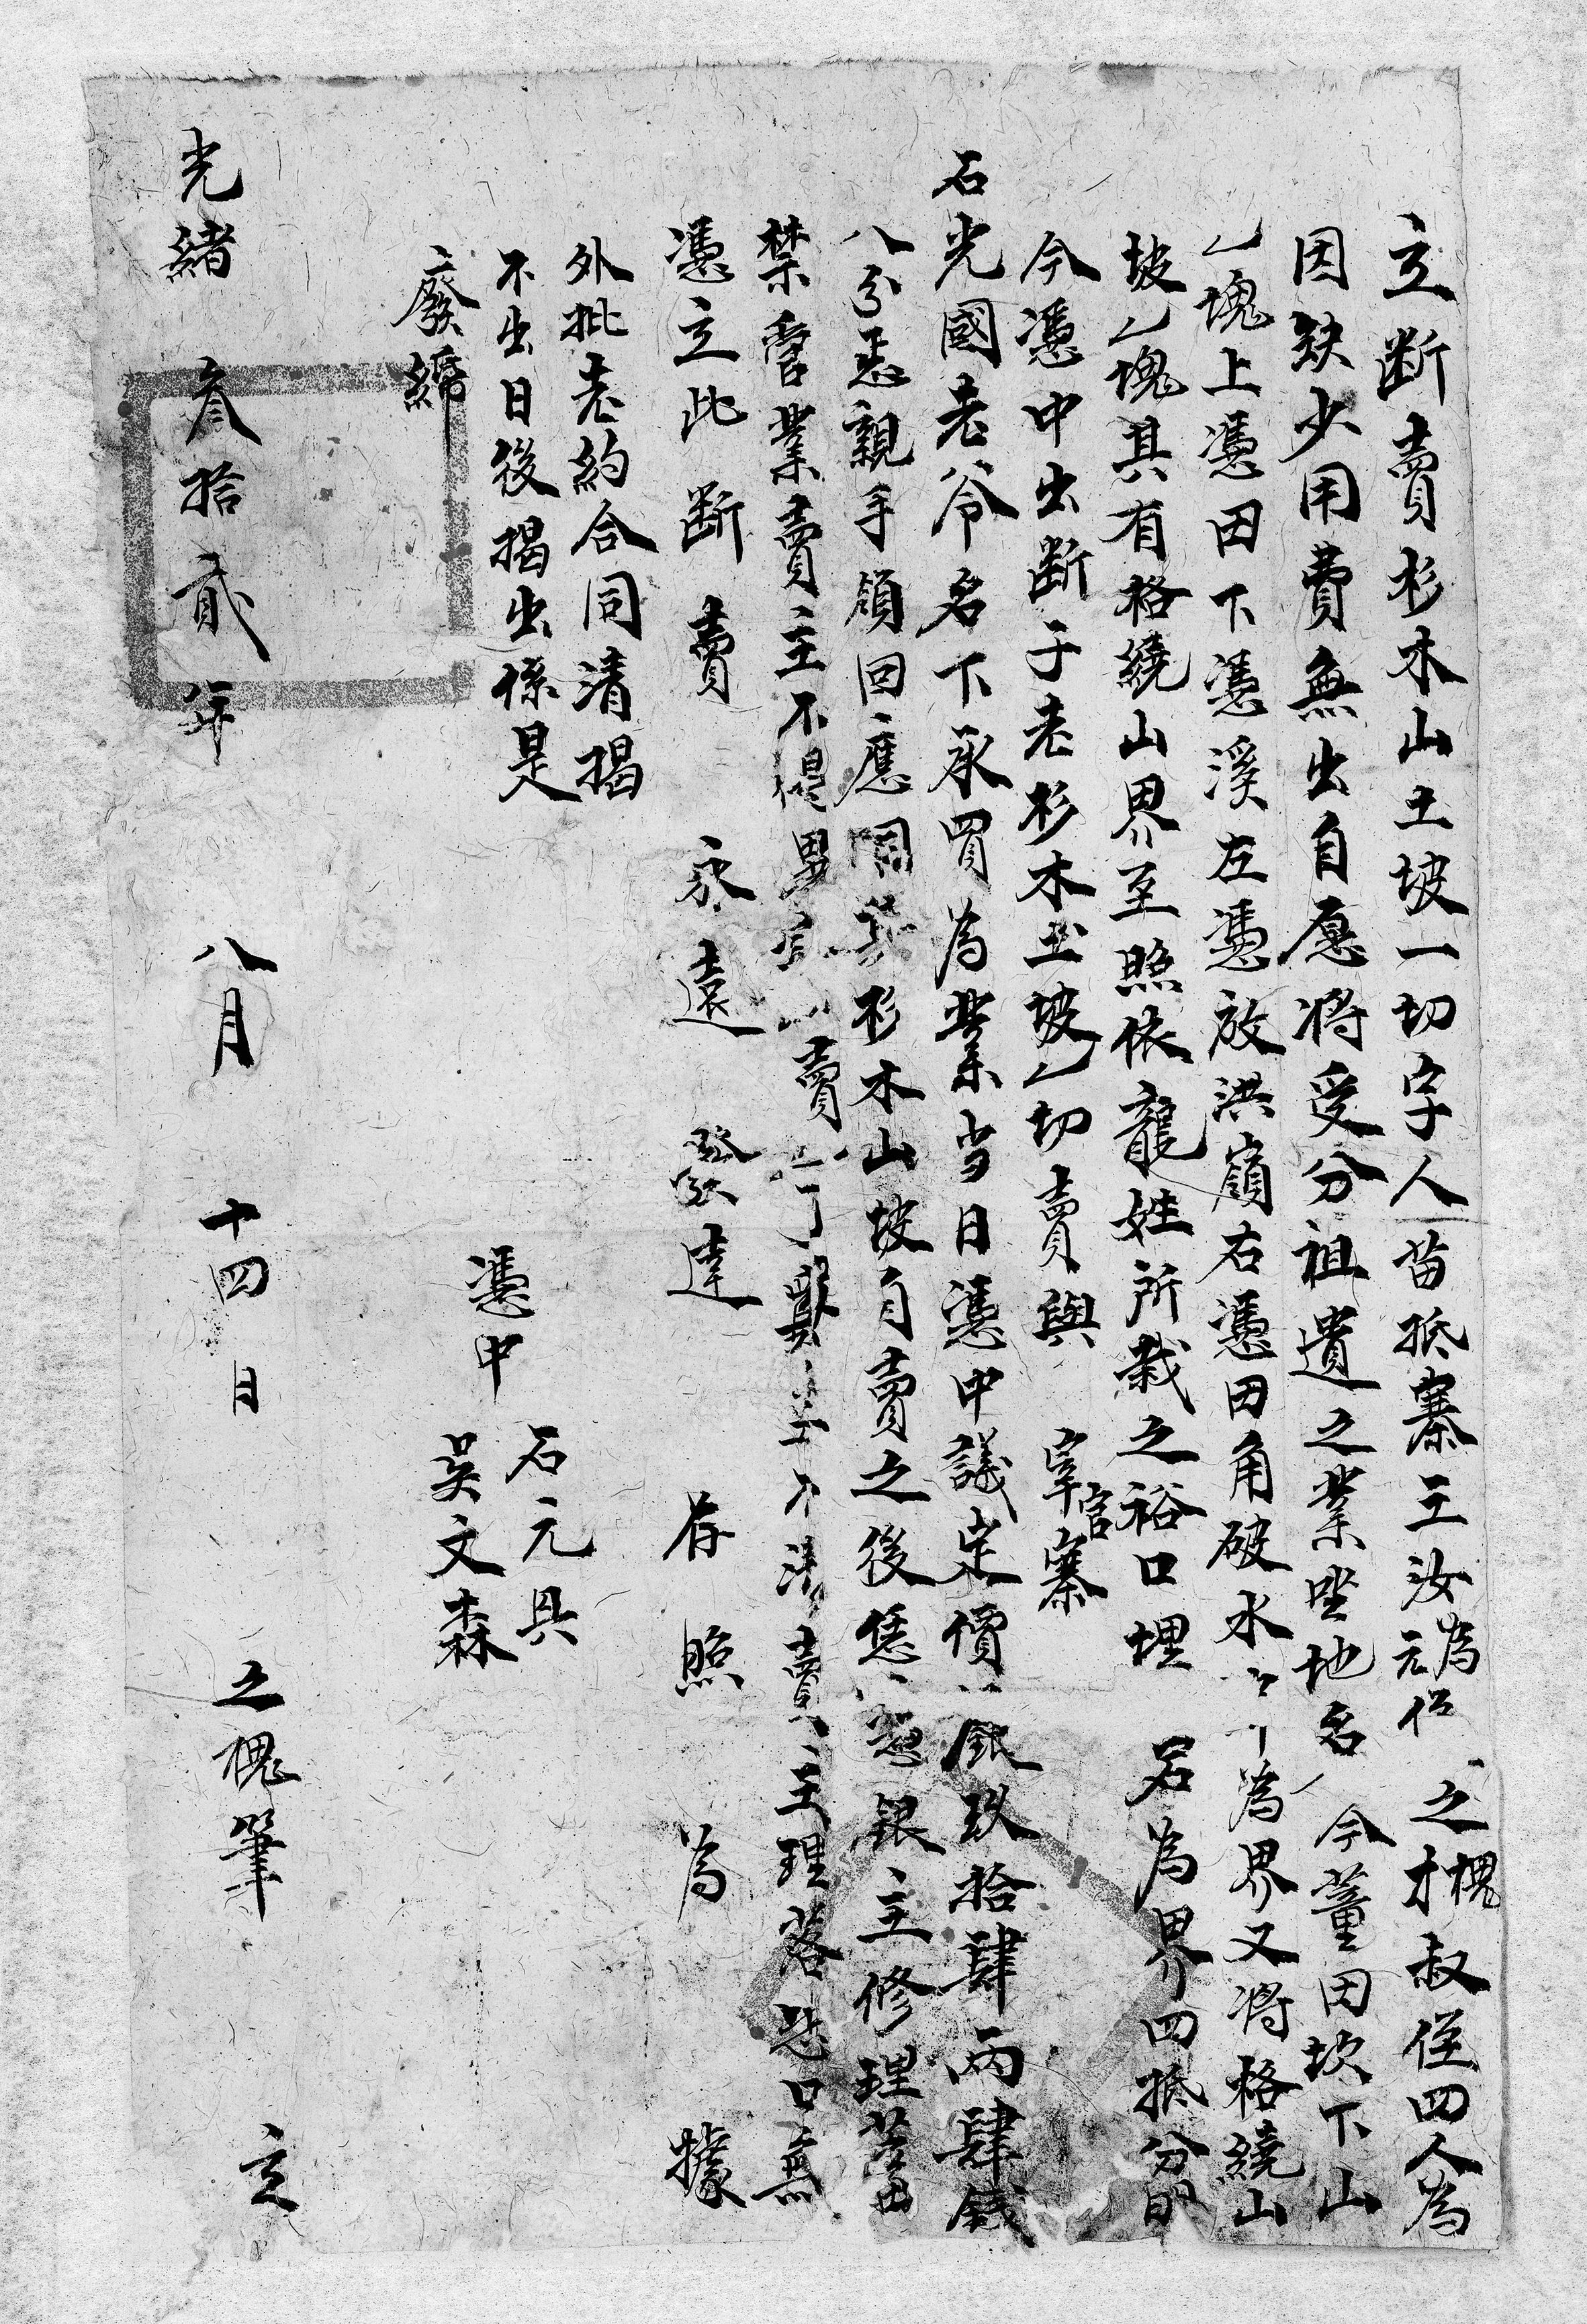 立断賣杉木山土坡一切字人苗抵寨王汝為元佋之槐才叔侄四人為
因缺少用費無出自愿將受分祖遺之業坐地名今董田坎下山
乙塊上憑田下憑溪左憑放洪嶺右憑田角破水為界又將格繞山
坡乙塊其有格繞山界至照依龍姓所栽之裕口埋岩為界四抵分明
今憑中出断于老杉木土坡乙切賣與宰官寨
石光國老爷名下承買為業当日憑中議定價銀玖拾肆兩肆錢
八分悉親手領回應用其杉木山坡自賣之後恁憑銀主修理蓄
禁管業賣主不得異言賣主不清賣主理落恐口無
憑立此断賣永遠發達存照為據
外批老約合同清揭
不出日後揭出係是
廢締
憑中
石元具
吴文森
光緒叁拾貳年八月十四日之槐筆立